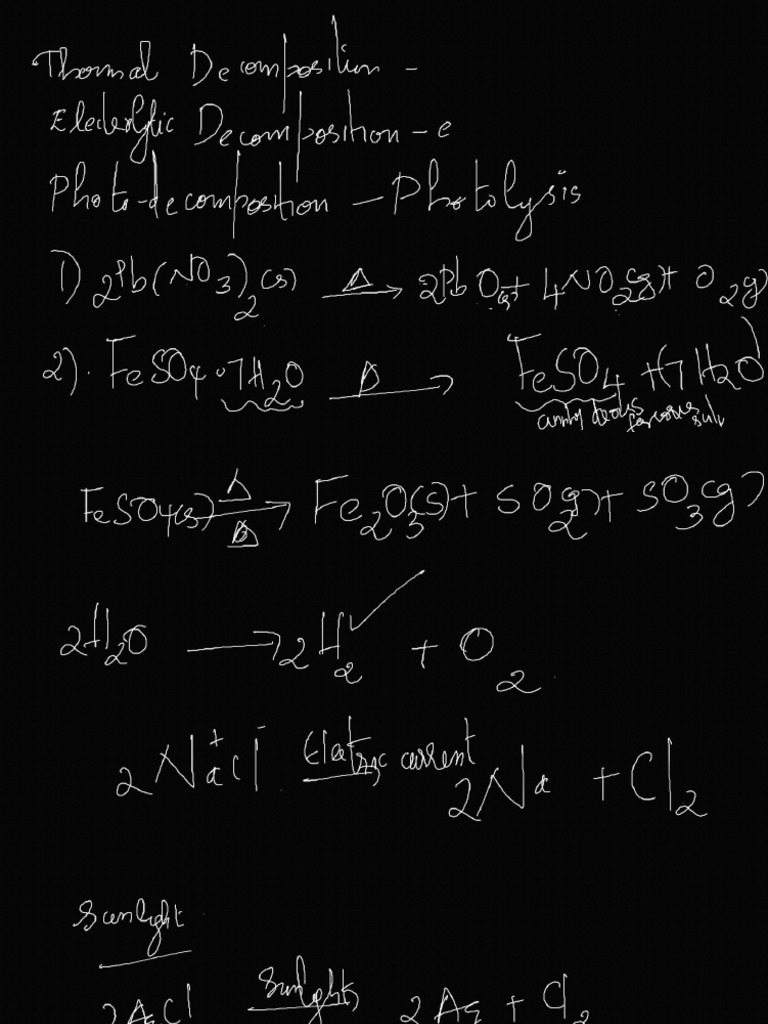 Thermal Decomposition -
Electrolytic Decomposition - e
Photo-decomposition - Photolysis
1) 2Pb(NO3)2(s) Δ → 2PbO(s) + 4NO2(g) + O2(g)
2). FeSO4·7H2O Δ → FeSO4 + (7H2O)
FeSO4(s) Δ → Δ Fe2O3(s) + SO2(g) + SO3(g)
2H2O → 2H2 ✓ + O2
2Na+Cl- Electric current 2Na + Cl2
Sunlight
2AgCl Sunlight 2Ag + Cl2